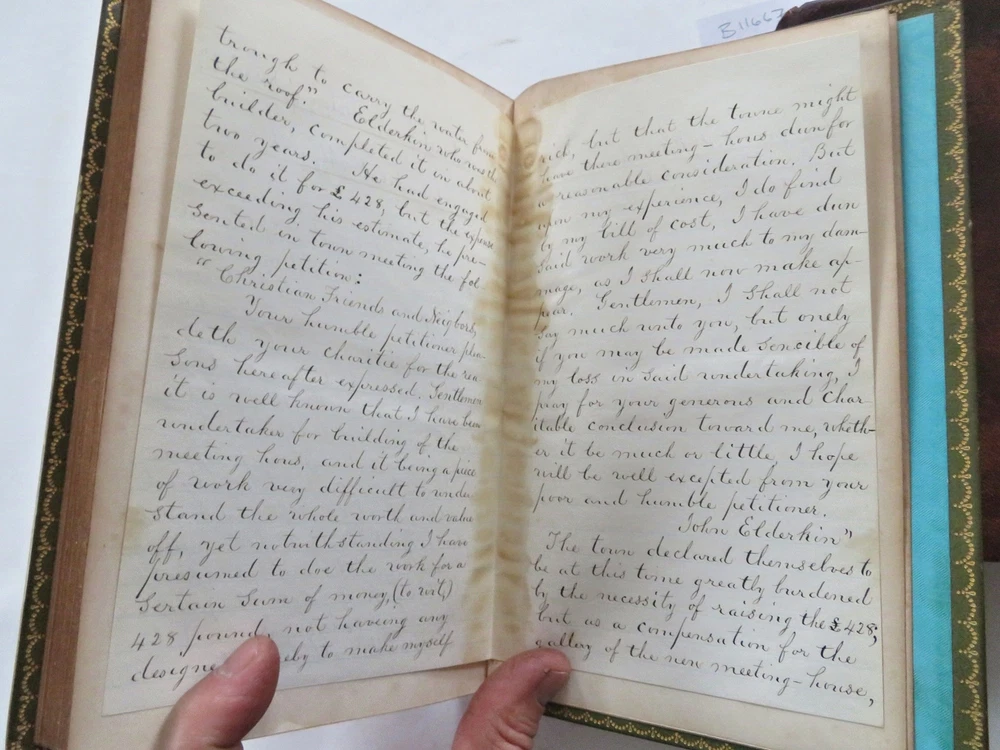 B11667
trough to carry the water from
the roof." Elderkin who was the
builder, completed it in about
two years. He had engaged
to do it for £428, but the expense
exceeding his estimate, he pre-
sented in town meeting the fol
lowing petition:
"Christian Friends and Neigbors,
Your humble petitioner plea-
deth your charitie for the rea
sons hereafter expressed. Gentlemen
it is well known that I have been
undertaker for building of the
meeting hous, and it being a piece
of work very difficult to under
stand the whole worth and value
off, yet notwithstanding I have
presumed to doe the work for a
sertain sum of money, (to wit)
428 pounds, not haveing any
to make myself
rich, but that the towne might
have there meeting-hous dun for
a reasonable consideration. But
upon my experience, I do find
by my bill of cost, I have dun
said work very much to my dam-
mage, as I shall now make ap-
pear. Gentlemen, I shall not
say much unto you, but onely
if you may be made sencible of
my loss in said undertaking, I
pray for your generous and char-
itable conclusion toward me, wheth-
er it be much or little, I hope
will be well excepted from your
poor and humble petitioner.
John Elderkin"
The town declared themselves to
be at this time greatly burdened
by the necessity of raising the £428;
but as a compensation for the
gallery of the new meeting-house,